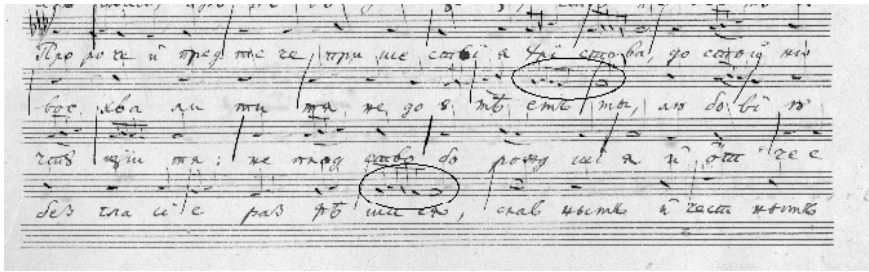 Про ро че й пред те че, при ше стві я Хрі сто ва, до стой но
вос хва ли ти тя не до ꙋ мѣ емъ мы, лю бо ві ю
чтꙋ щіи тя: не плод ство бо рожд ші я й от че е
без гла сі е раз рѣ ши ся, слав нымъ й чест нымъ